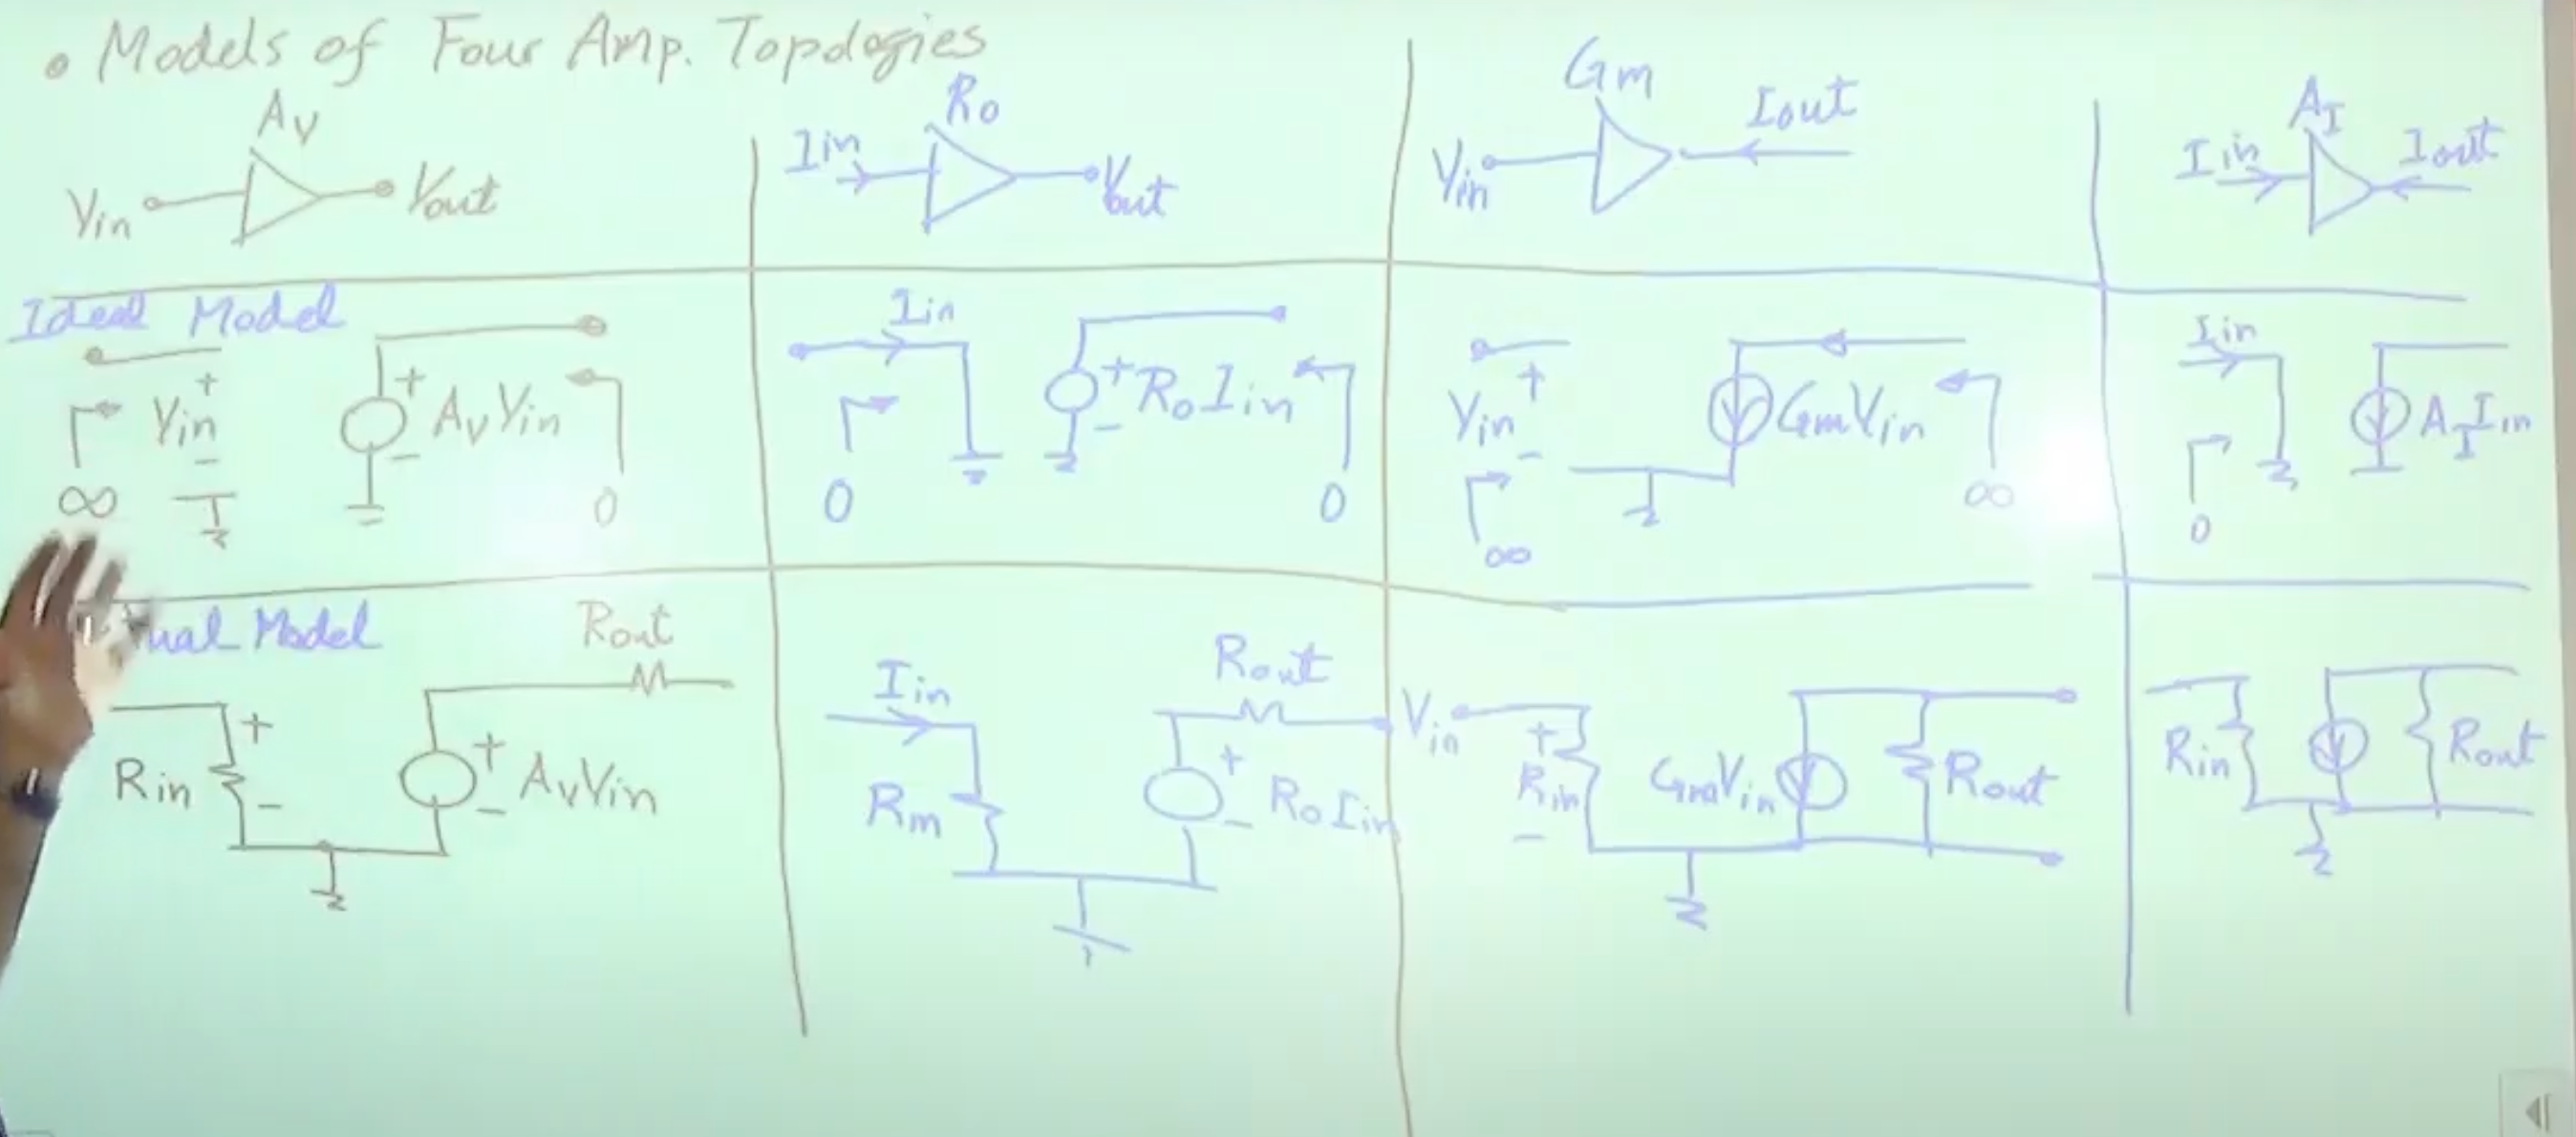 • Models of Four Amp. Topologies
Av
Vin
Vout
Ro
Iin
Vout
Gm
Vin
Iout
AI
Iin
Iout
Ideal Model
Vin
+
-
∞
+
-
AvVin
0
Iin
0
+
-
RoIin
0
Vin
+
-
∞
GmVin
∞
Iin
0
AIIin
Model
Rin
+
-
+
-
AvVin
Rout
Iin
Rin
+
-
RoIin
Rout
Vin
+
Rin
-
GmVin
Rout
Rin
Rout